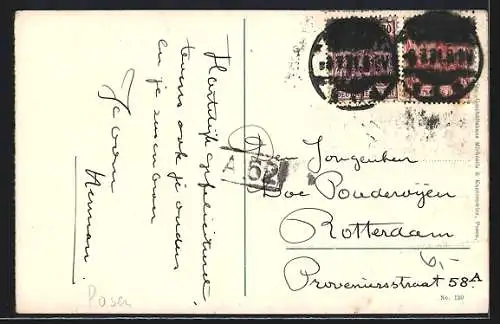 Hartelijk gefeliciteerd,
tevens ook je ouders
en je zusen oom
Je oom
Herman.
Posen
A 52
Den
Jongenheer
Doe Pouderoijen
Rotterdam
Proveniersstraat 58A
6,-
No. 120